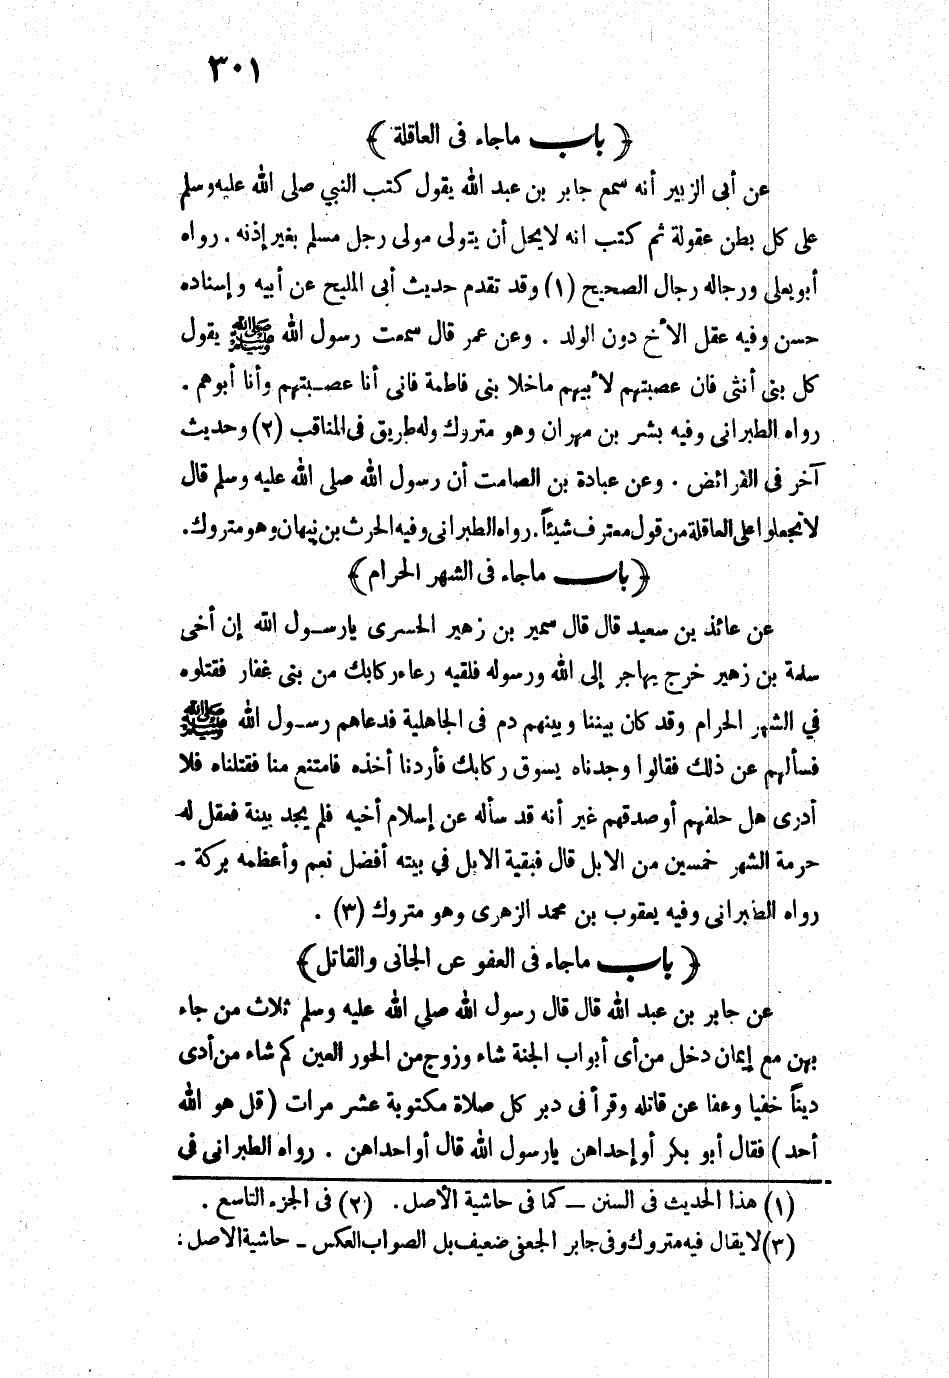 ٣٠١
﴿ باب ماجاء فى العاقلة ﴾
عن أبى الزبير أنه سمع جابر بن عبد الله يقول كتب النبي صلى الله عليه وسلم
على كل بطن عقولة ثم كتب انه لايحل أن يتولى مولى رجل مسلم بغير إذنه . رواه
أبو يعلى ورجاله رجال الصحيح (١) وقد تقدم حديث أبى المليح عن أبيه وإسناده
حسن وفيه عقل الأخ دون الولد . وعن عمر قال سمعت رسول الله ﷺ يقول
كل بنى أنثى فان عصبتهم لأبيهم ماخلا بنى فاطمة فانى أنا عصبتهم وأنا أبوهم .
رواه الطبرانى وفيه بشر بن مهران وهو متروك وله طريق فى المناقب (٢) وحديث
آخر فى الفرائض . وعن عبادة بن الصامت أن رسول الله صلى الله عليه وسلم قال
لاتجعلوا على العاقلة من قول معترف شيئاً . رواه الطبرانى وفيه الحرث بن نبهان وهو متروك.
﴿ باب ماجاء فى الشهر الحرام ﴾
عن عائذ بن سعيد قال قال سمير بن زهير الجسرى يارسول الله إن أخى
سلمة بن زهير خرج يهاجر إلى الله ورسوله فلقيه رعاء ركابك من بنى غفار فقتلوه
في الشهر الحرام وقد كان بيننا وبينهم دم فى الجاهلية فدعاهم رسول الله ﷺ
فسألهم عن ذلك فقالوا وجدناه يسوق ركابك فأردنا أخذه فامتنع منا فقتلناه فلا
أدرى هل حلفهم أو صدقهم غير أنه قد سأله عن إسلام أخيه فلم يجد بينة فعقل له
حرمة الشهر خمسين من الابل قال فبقية الابل في بيته أفضل نعم وأعظمه بركة -
رواه الطبرانى وفيه يعقوب بن محمد الزهرى وهو متروك (٣) .
﴿ باب ماجاء فى العفو عن الجانى والقاتل ﴾
عن جابر بن عبد الله قال قال رسول الله صلي الله عليه وسلم ثلاث من جاء
بهن مع إيمان دخل من أى أبواب الجنة شاء وزوج من الحور العين كم شاء من أدى
ديناً خفيا وعفا عن قاتله وقرأ فى دبر كل صلاة مكتوبة عشر مرات (قل هو الله
أحد) فقال أبو بكر أو إحداهن يارسول الله قال أو احداهن . رواه الطبرانى فى
(١) هذا الحديث فى السنن — كما فى حاشية الأصل . (٢) فى الجزء التاسع .
(٣) لايقال فيه متروك وفى جابر الجعفى ضعيف بل الصواب العكس - حاشية الاصل :